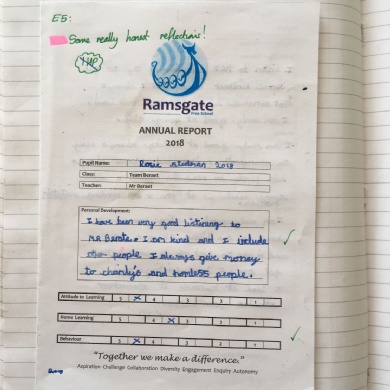 E5:
Some really honest reflections!
1 UP
Ramsgate
Free School
ANNUAL REPORT
2018
Pupil Name: Rosie 2018
Class: Team Beraet
Teacher: Mr Beraet
Personal Development:
I have been very good listening to
I am kind and I include
people I always give money
to and people.
Attitude to Learning 5 4 3 2 1
Home Learning 5 4 3 2 1
Behaviour 5 4 3 2 1
"Together we make a difference."
Aspiration Challenge Collaboration Diversity Engagement Enquiry Autonomy